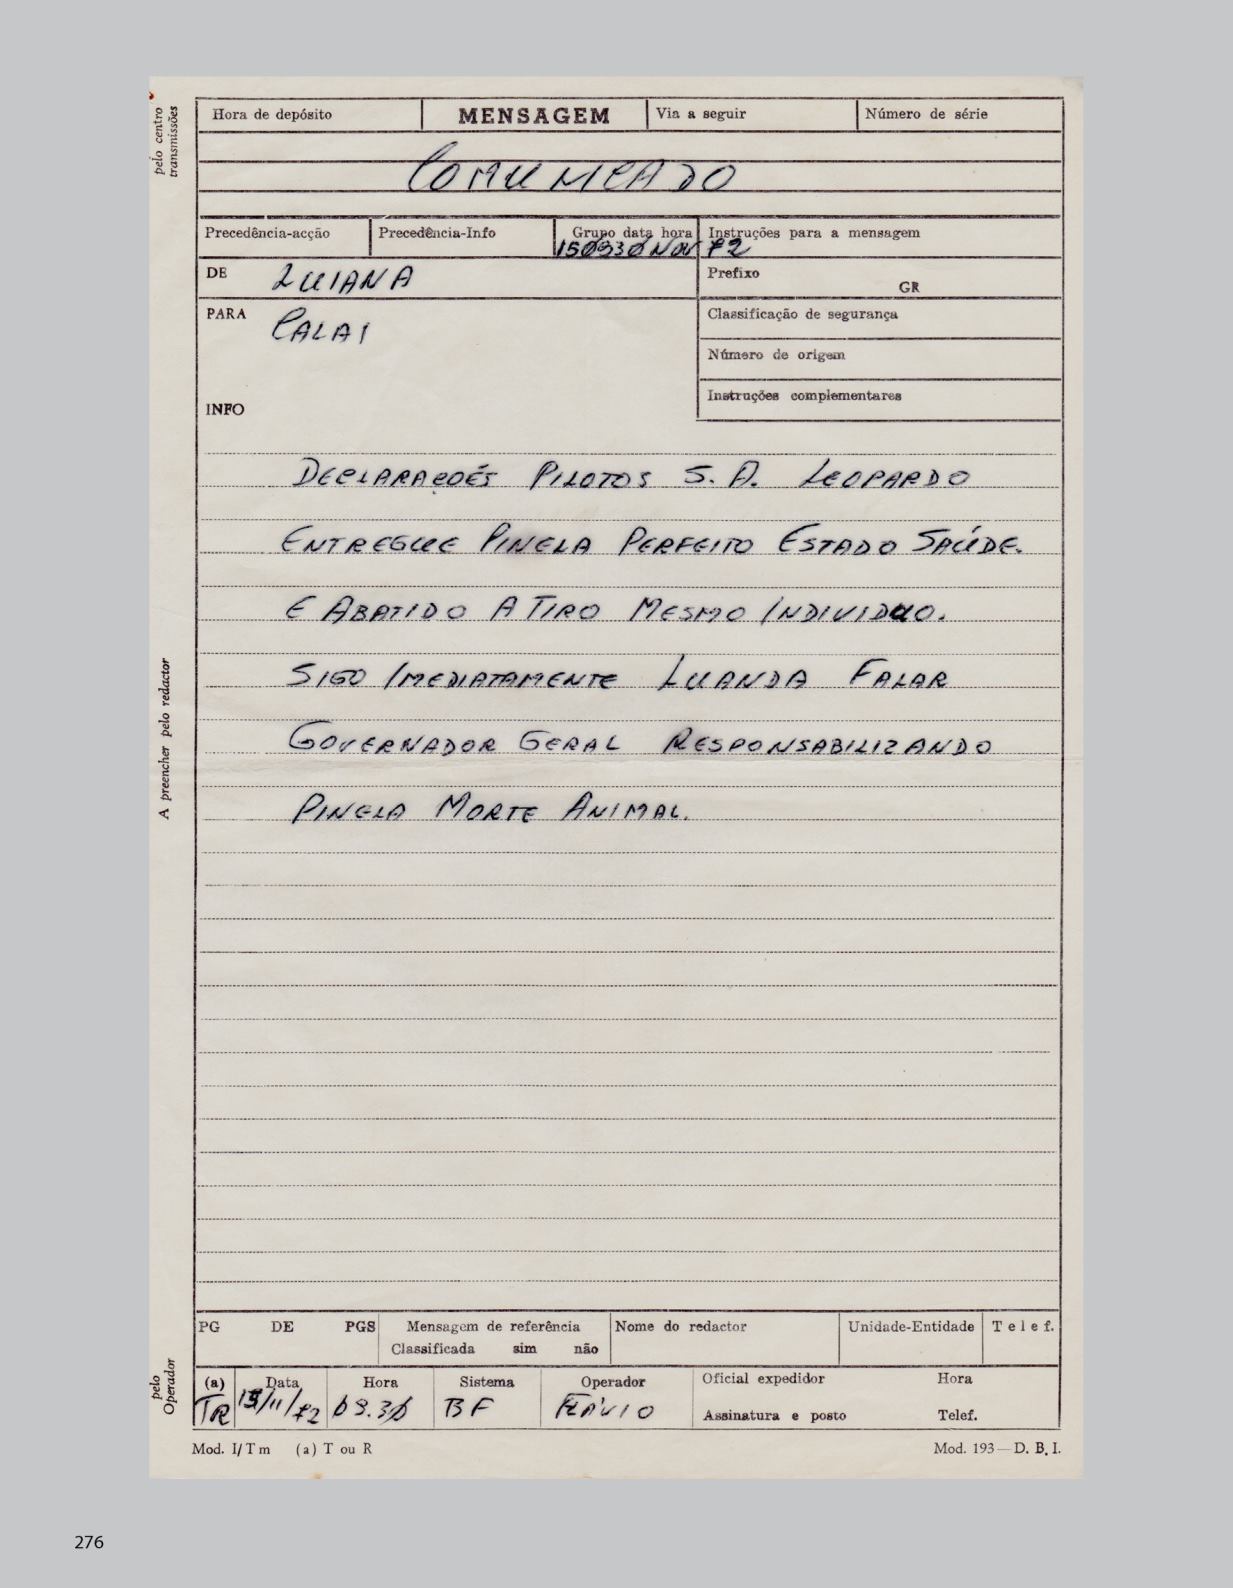 pelo centro
transmissões
Hora de depósito MENSAGEM Via a seguir Número de série
COMUNICADO
Precedência-acção Precedência-Info Grupo data hora Instruções para a mensagem
150930 NOV 72
DE LUIANA Prefixo
GR
PARA CALAI Classificação de segurança
Número de origem
Instruções complementares
INFO
DECLARAÇOÉS PILOTOS S. A. LEOPARDO
ENTREGUE PINELA PERFEITO ESTADO SAÚDE.
E ABATIDO A TIRO MESMO INDIVIDUO.
SIGO IMEDIATAMENTE LUANDA FALAR
GOVERNADOR GERAL RESPONSABILIZANDO
PINELA MORTE ANIMAL.
A preencher pelo redactor
PG DE PGS Mensagem de referência Nome do redactor Unidade-Entidade Telef.
Classificada sim não
pelo
Operador
(a) Data Hora Sistema Operador Oficial expedidor Hora
TR 15/11/72 09.30 BF FLÁVIO Assinatura e posto Telef.
Mod. I/Tm (a) T ou R Mod. 193—D. B. I.
276